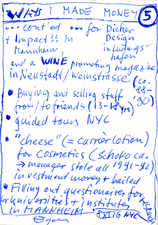 WAYS I MADE MONEY 5
... cont'ed ... for Dicker
+ Impact !! in Design
Mannheim in Ludwigs-
hafen
and a WINE promoting magazine
in Neustadt/Weinstrasse (ca.
88-
90)
• Buying and selling stuff
from/to friends (13-18 yrs)
• guided tours NYC
• "cheese" (= carrier lotion)
for Cosmetics (Schoko ca.
→ manager stole all 1991-92)
investment money + bailed
• Filling out questionaries for
universities + institutes
in MANNHEIM